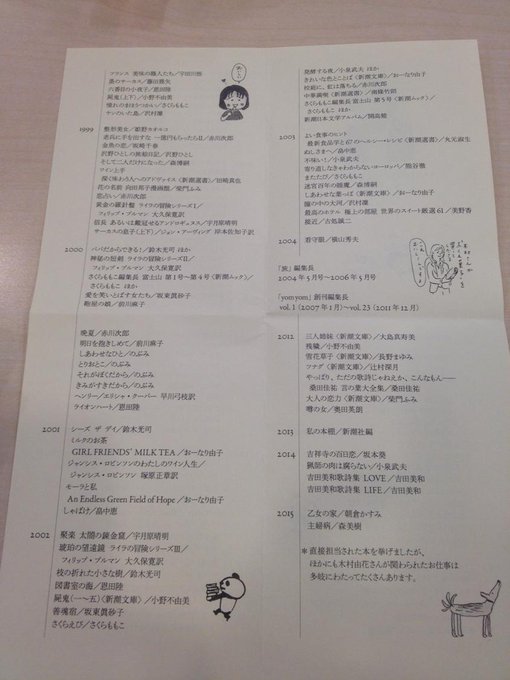 フランス 美味の職人たち／宇田川悟
藁のサーカス／藤田雅矢
六番目の小夜子／恩田陸
屍鬼(上下)／小野不由美
憧れのまほうつかい／さくらももこ
ヤンのいた島／沢村凜
1999 整形美女／姫野カオルコ
老兵に手を出すな 一億円もらったらII／赤川次郎
金魚の恋／坂崎千春
沢野ひとしの黒線日記／沢野ひとし
そして二人だけになった／森博嗣
ワイン上手
深く味わう人へのアドヴァイス〈新潮選書〉／田崎真也
花の名前 向田邦子漫画館／柴門ふみ
恋占い／赤川次郎
黄金の羅針盤 ライラの冒険シリーズI／
フィリップ・プルマン 大久保寛訳
信長 あるいは戴冠せるアンドロギュヌス／宇月原晴明
サーカスの息子(上下)／ジョン・アーヴィング 岸本佐知子訳
2000 パパだからできる!／鈴木光司 ほか
神秘の短剣 ライラの冒険シリーズII／
フィリップ・プルマン 大久保寛訳
さくらももこ編集長 富士山 第1号〜第4号〈新潮ムック〉／
さくらももこ ほか
愛を笑いとばす女たち／坂東眞砂子
鞄屋の娘／前川麻子
晩夏／赤川次郎
明日を抱きしめて／前川麻子
しあわせなひと／のぶみ
とりおとこ／のぶみ
それがぼくだから／のぶみ
きみがすきだから／のぶみ
ヘンリー／エリシャ・クーパー 早川弓枝訳
ライオンハート／恩田陸
2001 シーズ ザ デイ／鈴木光司
ミルクのお茶
GIRL FRIENDS' MILK TEA／おーなり由子
ジャンシス・ロビンソンのわたしのワイン人生／
ジャンシス・ロビンソン 塚原正章訳
モーラと私
An Endless Green Field of Hope／おーなり由子
しゃばけ／畠中恵
2002 聚楽 太閤の錬金窟／宇月原晴明
琥珀の望遠鏡 ライラの冒険シリーズIII／
フィリップ・プルマン 大久保寛訳
枝の折れた小さな樹／鈴木光司
図書室の海／恩田陸
屍鬼(一〜五)〈新潮文庫〉／小野不由美
善魂宿／坂東眞砂子
さくらえび／さくらももこ
発酵する夜／小泉武夫 ほか
きれいな色とことば〈新潮文庫〉／おーなり由子
校庭に、虹は落ちる／赤川次郎
中華満喫〈新潮選書〉／南條竹則
さくらももこ編集長 富士山 第5号〈新潮ムック〉／
さくらももこ ほか
新潮日本文学アルバム／開高健
2003 よい食事のヒント
最新食品学と67のヘルシー・レシピ〈新潮選書〉／丸元淑生
ぬしさまへ／畠中恵
不味い!／小泉武夫
寄り道しなきゃわからないヨーロッパ／熊谷徹
またたび／さくらももこ
迷宮百年の睡魔／森博嗣
しあわせな葉っぱ〈新潮文庫〉／おーなり由子
瞳の中の大河／沢村凜
最高のホテル 極上の部屋 世界のスイート厳選61／美野香
接近／古処誠二
2004 看守眼／横山秀夫
「旅」編集長
2004年5月号〜2006年5月号
「yom yom」創刊編集長
vol. 1(2007年1月)〜vol. 23(2011年12月)
2012 三人姉妹〈新潮文庫〉／大島真寿美
残穢／小野不由美
雪花草子〈新潮文庫〉／長野まゆみ
ツナグ〈新潮文庫〉／辻村深月
やっぱり、ただの歌詩じゃねえか、こんなもん――
桑田佳祐 言の葉大全集／桑田佳祐
大人の恋力〈新潮文庫〉／柴門ふみ
噂の女／奥田英朗
2013 私の本棚／新潮社編
2014 吉祥寺の百日恋／坂本葵
猟師の肉は腐らない／小泉武夫
吉田美和歌詩集 LOVE／吉田美和
吉田美和歌詩集 LIFE／吉田美和
2015 乙女の家／朝倉かすみ
主婦病／森美樹
＊直接担当された本を挙げましたが、
ほかにも木村由花さんが関わられたお仕事は
多岐にわたってたくさんあります。